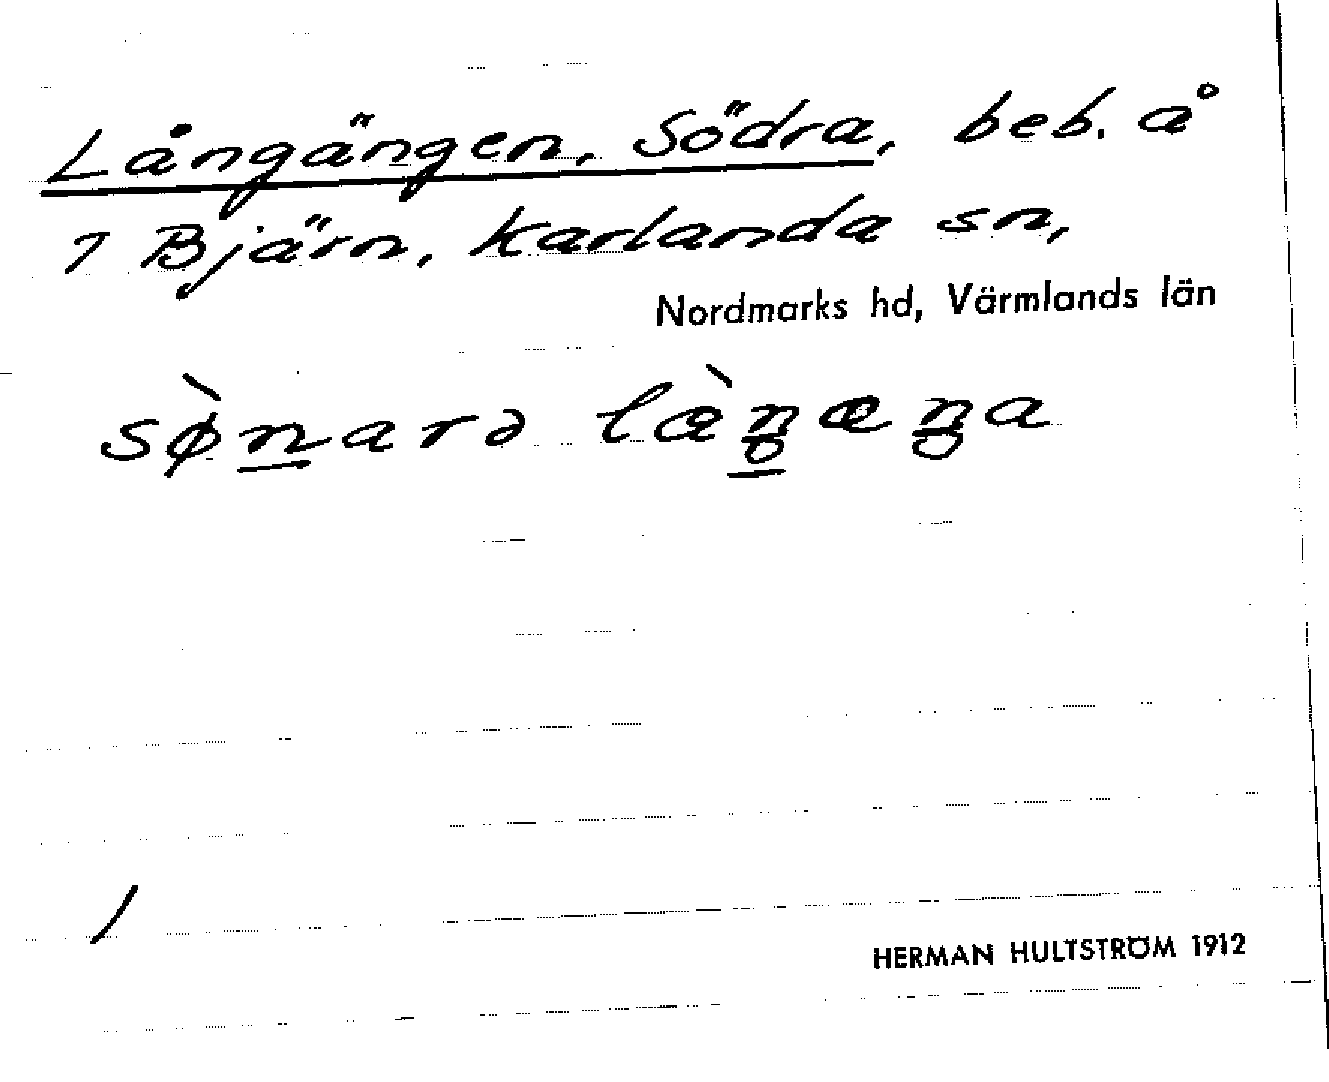 Långängen, Södra, beb. å
7 Bjärn, Karlanda sn,
Nordmarks hd, Värmlands län
/
HERMAN HULTSTRÖM 1912